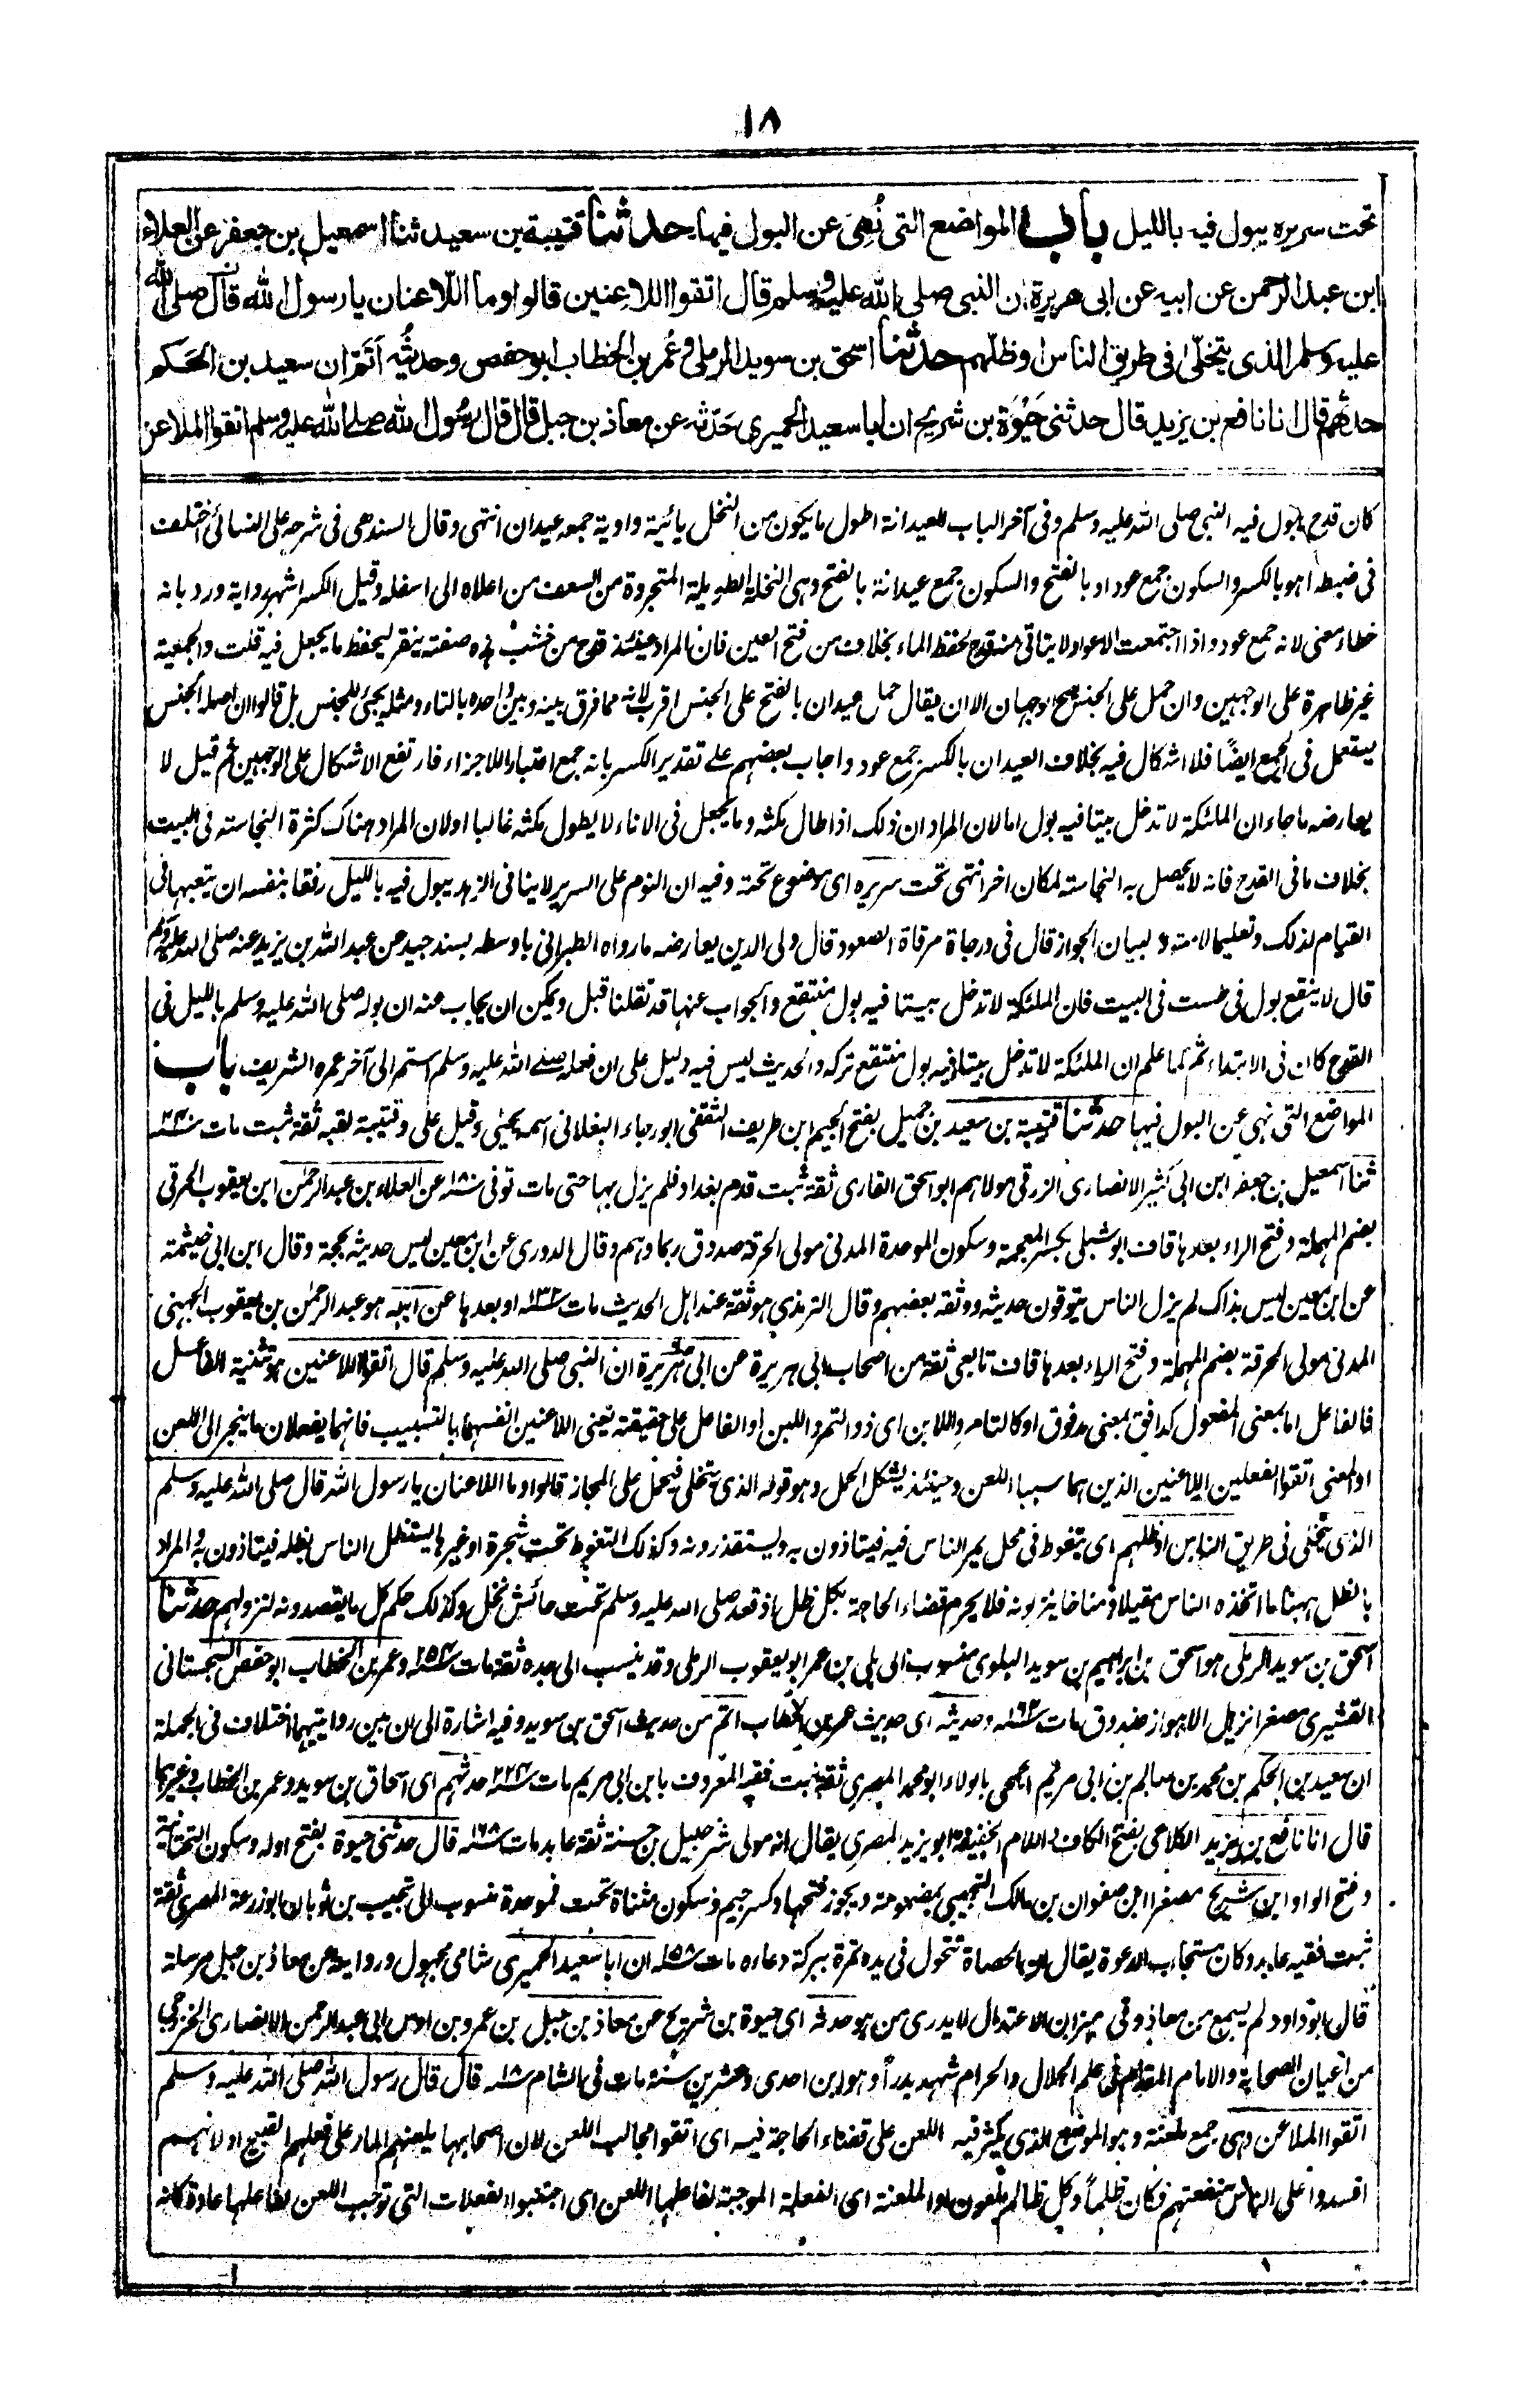 ١٨
تحت سريره يبول فيه بالليل باب المواضع التى نُهِىَ عن البول فيها حدثنا قتيبة بن سعيد ثنا اسمعيل بن جعفر عن العلاء
ابن عبد الرحمن عن ابيه عن ابى هريرة ان النبى صلى الله عليه وسلم قال اتقوا اللاعِنين قالوا وما اللّاعنان يا رسول الله قال صلى الله
عليه وسلم الذى يتخلّى فى طريق الناس او ظلّهم حدثنا اسحق بن سويد الرملى وعُمر بن الخطاب ابو حفص وحديثُه اَتَمّ ان سعيد بن الحَكم
حدثهم قال انا نافع بن يزيد قال حدثنى حَيْوَة بن شريح ان ابا سعيد الحميرى حَدّثه عن معاذ بن جبل قال قال رسُول الله صلى الله عليه وسلم اتقوا الملاعن
كان قدح يبول فيه النبى صلى الله عليه وسلم وفى آخر الباب العيدانة اطول ما يكون من النخل يائية واوية جمعه عيدان انتهى وقال السندهى فى شرحه على النسائى اختلف
فى ضبط اهو بالكسر والسكون جمع عود او بالفتح والسكون جمع عيدانة بالفتح وهى النخلة الطويلة المتجردة من السعف من اعلاه الى اسفله وقيل الكسر اشهر رواية ورد بانه
خطاء معنى لانه جمع عود واذا اجتمعت الاعواد لا يتاتى منه قدح لحفظ الماء بخلاف من فتح العين فان المراد حينئذ قدح من خشب هذه صفته ينقر ليحفظ ما يجعل فيه قلت والجمعية
غير ظاهرة على الوجهين وان حمل على الجنس صح الوجهان الا ان يقال حمل عيدان بالفتح على الجنس اقرب لانه مما فرق بينه وبين واحده بالتاء ومثله يجئ للجنس بل قالوا ان اصله الجنس
يستعمل فى الجمع ايضًا فلا اشكال فيه بخلاف العيدان بالكسر جمع عود واجاب بعضهم على تقدير الكسر بانه جمع اعتبارا للاجزاء فارتفع الاشكال على الوجهين ثم قيل لا
يعارضه ما جاء ان الملئكة لا تدخل بيتا فيه بول اما لان المراد ان ذلك اذا طال مكثه وما يجعل فى الاناء لا يطول مكثه غالبا او لان المراد هناك كثرة النجاسة فى البيت
بخلاف ما فى القدح فانه لا يحصل به النجاسة لمكان اخر انتهى تحت سريره اى موضوع تحته وفيه ان النوم على السرير لا ينافى الزهد يبول فيه بالليل رفقا بنفسه ان يتعبها فى
القيام لذلك وتعليما لامته و لبيان الجواز قال فى درجاة مرقاة الصعود قال ولى الدين يعارضه ما رواه الطبرانى باوسطه بسند جيد عن عبد الله بن يزيد عنه صلى الله عليه وسلم
قال لا ينقع بول فى طست فى البيت فان الملئكة لا تدخل بيتا فيه بول منتقع والجواب عنها قد نقلنا قبل ويمكن ان يجاب عنه ان بوله صلى الله عليه وسلم بالليل فى
القدح كان فى الابتداء ثم لما علم ان الملئكة لا تدخل بيتا فيه بول منتقع تركه والحديث ليس فيه دليل على ان فعله صلى الله عليه وسلم استمر الى آخر عمره الشريف باب
المواضع التى نهى عن البول فيها حدثنا قتيبة بن سعيد بن جميل بفتح الجيم ابن طريف الثقفى ابو رجاء البغلانى اسمه يحيٰى وقيل على وقتيبة لقبه ثقة ثبت مات سنة ٢٤٠
ثنا اسمعيل بن جعفر ابن ابى كثير الانصارى الزرقى مولاهم ابو اسحق القارى ثقة ثبت قدم بغداد فلم يزل بها حتى مات توفى سنة ١٨٠ عن العلاء بن عبد الرحمٰن ابن يعقوب الحرقى
بضم المهملة وفتح الراء بعدها قاف ابو شبلى بكسر المعجمة وسكون الموحدة المدنى مولى الحرقة صدوق ربما وهم وقال الدورى عن ابن معين ليس حديثه بحجة وقال ابن ابى خيثمة
عن ابن معين ليس بذاك لم يزل الناس يتوقون حديثه ووثقه بعضهم وقال الترمذى هو ثقة عند اهل الحديث مات سنة ١٣٢ او بعدها عن ابيه هو عبد الرحمٰن بن يعقوب الجهنى
المدنى مولى الحرقة بضم المهملة وفتح الراء بعدها قاف تابعى ثقة من اصحاب ابى هريرة عن ابى هُريرة ان النبى صلى الله عليه وسلم قال اتقوا اللاعنين هو تثنية الفاعل
فالفاعل اما بمعنى المفعول كدافق بمعنى مدفوق او كالتامر واللابن اى ذو التمر واللبن او الفاعل على حقيقته يعنى اللاعنين انفسهما بالتسبيب فانهما يفعلان ما ينجر الى اللعن
او المعنى اتقوا الفعلين اللاعنين الذين هما سببا اللعن وحينئذ يشكل الحمل وهو قوله الذى يتخلى فيحمل على المجاز قالوا وما اللاعنان يا رسول الله قال صلى الله عليه وسلم
الذى يتخلى فى طريق الناس او ظلهم اى يتغوط فى محل يمر الناس فيه فيتاذون به ويستقذرونه وكذلك التغوط تحت شجرة او غيرها يستظل الناس بظله فيتاذون به والمراد
بالظل ههنا ما اتخذه الناس مقيلا ومناخا ينزلونه فلا يحرم قضاء الحاجة بكل ظل اذ قعد صلى الله عليه وسلم تحت حائش نخل وكذلك حكم كل ما يقصدونه لنزولهم حدثنا
اسحق بن سويد الرملى هو اسحق بن ابراهيم بن سويد البلوى منسوب الى بلى بن عمر ابو يعقوب الرملى وقد ينسب الى جده ثقة مات سنة ٢٥٤ وعمر بن الخطاب ابو حفص السجستانى
القشيرى مصغرا نزيل الاهواز صدوق مات سنة ٢٦٤ وحديثه اى حديث عمر بن الخطاب اتم من حديث اسحق بن سويد وفيه اشارة الى ان بين روايتيهما اختلاف فى الجملة
ان سعيد بن الحكم بن محمد بن سالم بن ابى مريم الجمحى بالولاء ابو محمد المصرى ثقة ثبت فقيه المعروف بابن ابى مريم مات سنة ٢٢٤ حدثهم اى اسحاق بن سويد وعمر بن الخطاب وغيرهما
قال انا نافع بن يزيد الكلاعى بفتح الكاف واللام الخفيفة ابو يزيد المصرى يقال انه مولى شرحبيل بن حسنة ثقة عابد مات سنة ١٦٨ قال حدثنى حيوة بفتح اوله وسكون التحتانية
وفتح الواو ابن شريح مصغرا ابن صفوان بن مالك التجيبى بمضمومة ويجوز فتحها وكسر جيم وسكون مثناة تحت فموحدة منسوب الى تجيب بن ثوبان ابو زرعة المصرى ثقة
ثبت فقيه عابد وكان مستجاب الدعوة يقال ان الحصاة تتحول فى يده تمرة ببركة دعاءه مات سنة ١٥٨ ان ابا سعيد الحميرى شامى مجهول وروايته عن معاذ بن جبل مرسلة
قال ابو داود لم يسمع من معاذ وفى ميزان الاعتدال لا يدرى من هو حدثه اى حيوة بن شريح عن معاذ بن جبل بن عمرو بن اوس ابى عبد الرحمن الانصارى الخزرجى
من اعيان الصحابة والامام المقدام فى علم الحلال والحرام شهد بدراً وهو ابن احدى وعشرين سنة مات فى الشام سنة ١٨ قال قال رسول الله صلى الله عليه وسلم
اتقوا الملاعن وهى جمع ملعنة وهو الموضع الذى يكثر فيه اللعن على قضاء الحاجة فيه اى اتقوا مجالب اللعن لان اصحابها يلعنهم المار على فعلهم القبيح او لانهم
افسدوا على الناس منفعتهم فكان ظلماً وكل ظالم ملعون او الملعنة اى الفعلة الموجبة لفاعلها اللعن اى اجتنبوا الفعلات التى توجب اللعن لفاعلها عادة كانه